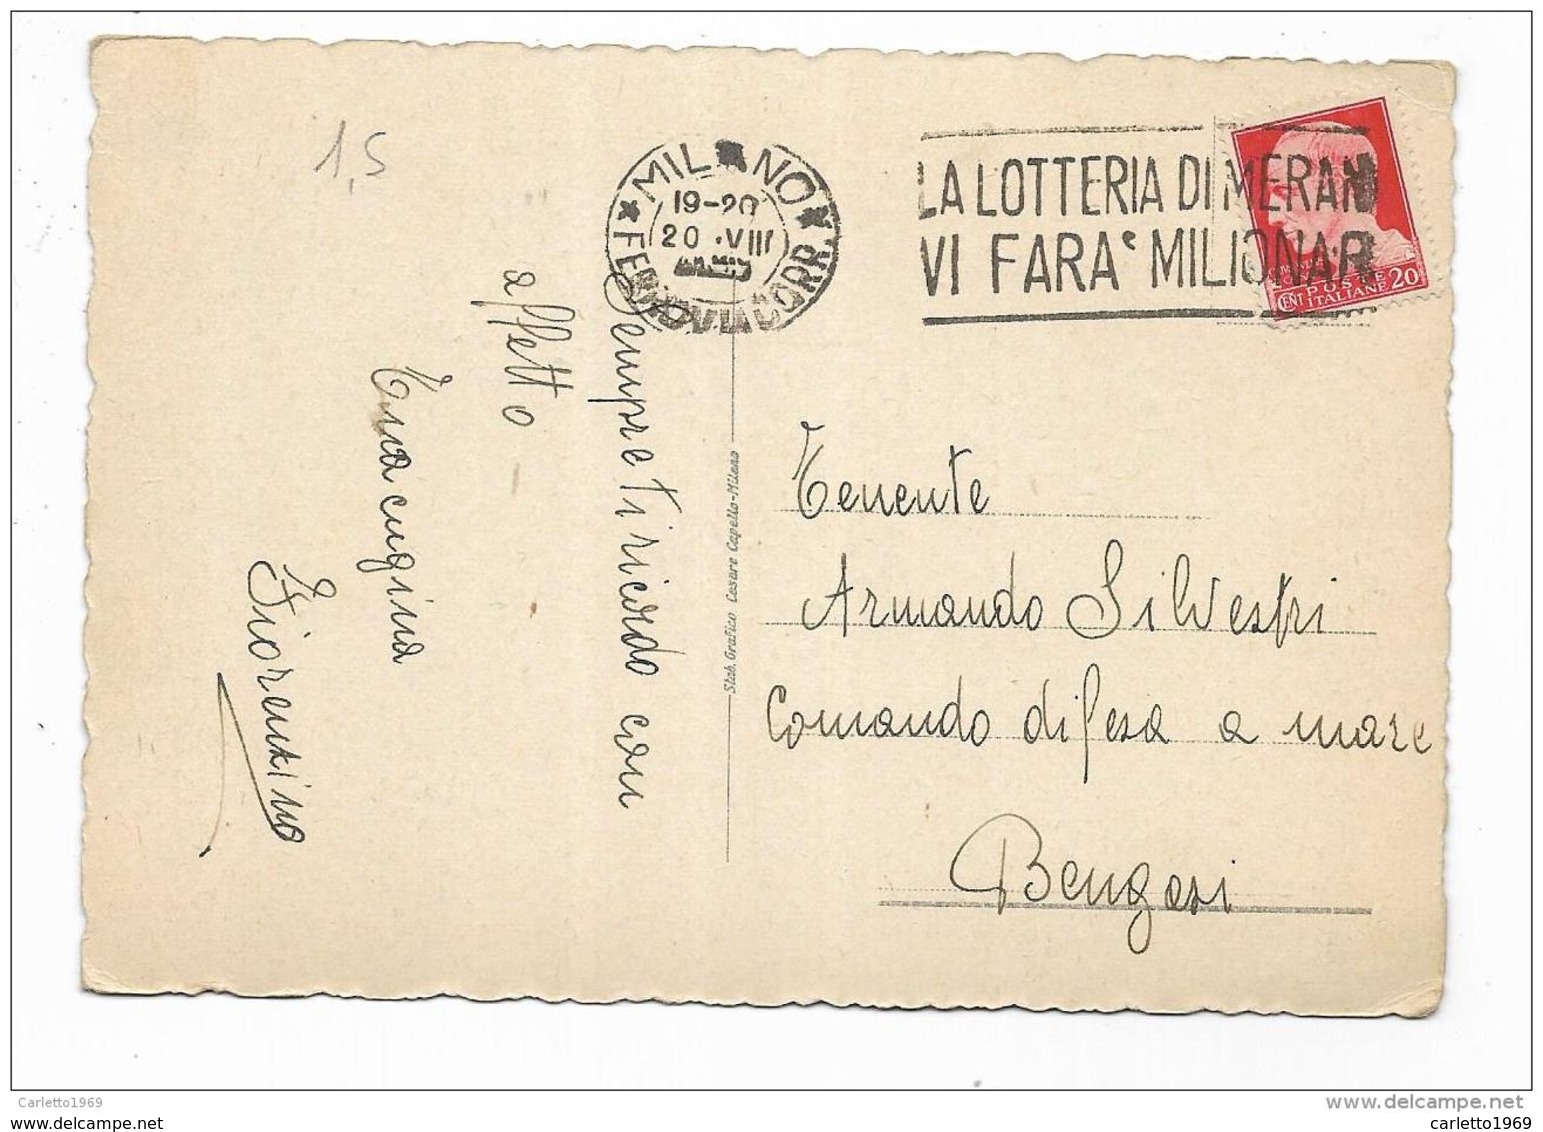 1,5
MILANO
19-20
20 .VIII
FERROVIA CORR.
LA LOTTERIA DI MERAN
VI FARA' MILIONAR
POSTE
ITALIANE
CENT 20
Sempre ti ricordo con
affetto
Tua cugina
Fiorenzina
Stab. Grafico Cesare Capello-Milano
Tenente
Armando Silvestri
Comando difesa a mare
Bengasi
Carletto1969
www.delcampe.net
www.delcampe.net
carletto1969